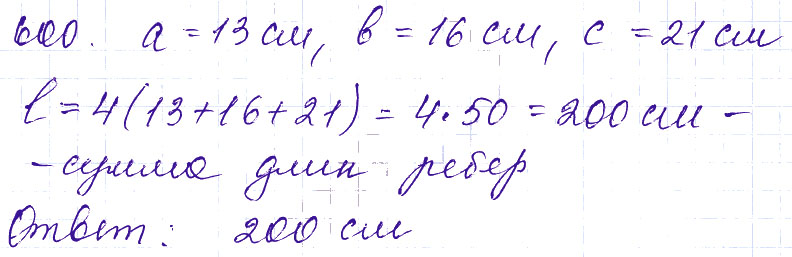 600. a = 13 см, в = 16 см, с = 21 см
l = 4(13+16+21) = 4·50 = 200 см -
- сумма длин ребер
Ответ: 200 см